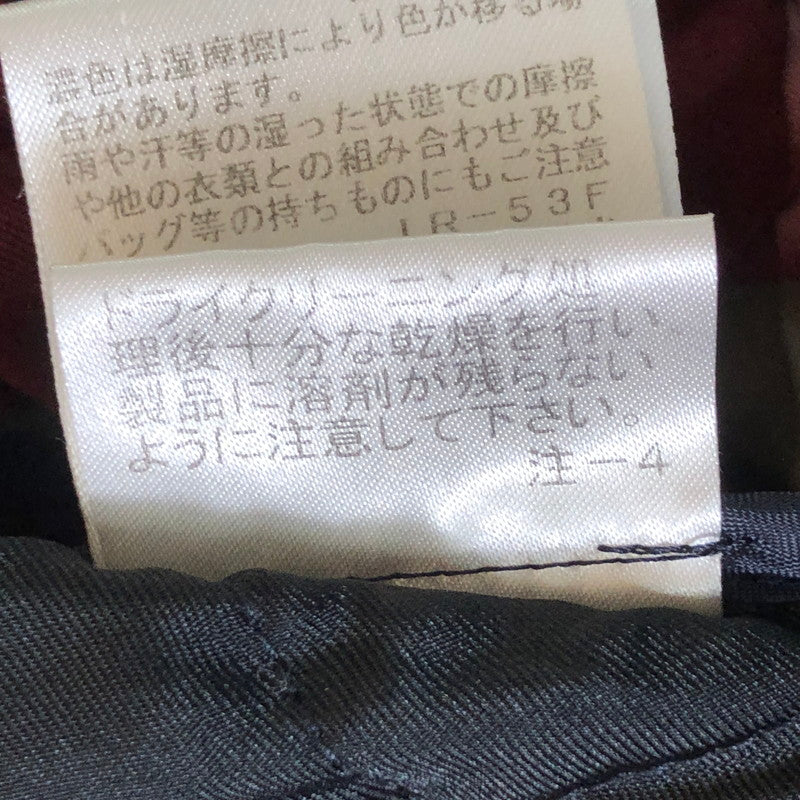 濃色は湿摩擦により色が移る場
合があります。
雨や汗等の湿った状態での摩擦
や他の衣類との組み合わせ及び
バッグ等の持ちものにもご注意
LR－53F
ドライクリーニング処
理後十分な乾燥を行い
製品に溶剤が残らない
ように注意して下さい。
注－4